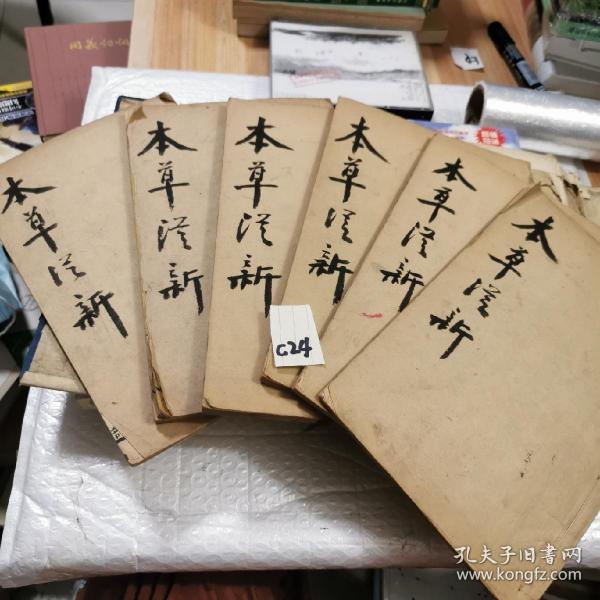 本草從新
本草從新
本草從新
本草從新
本草從新
本草從新
C24
孔夫子旧书网
www.kongfz.com